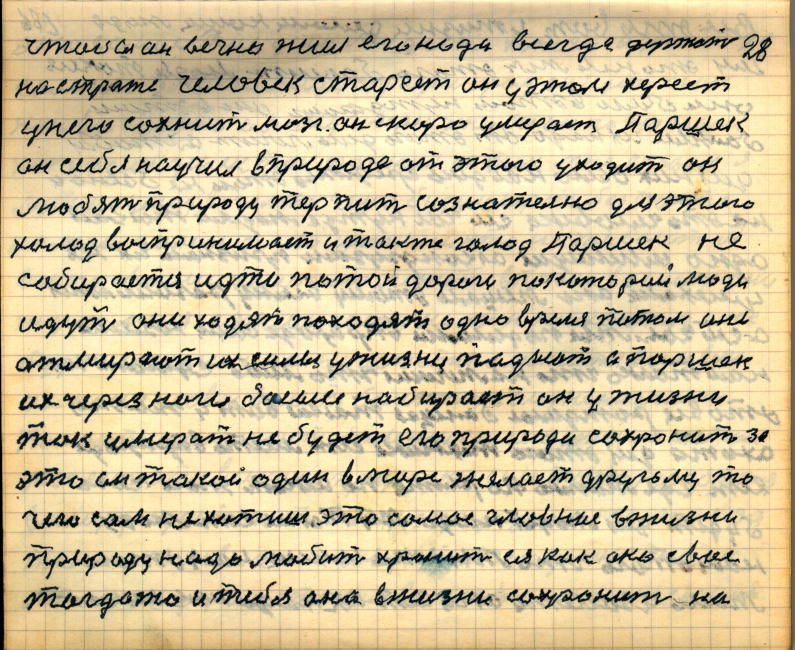 чтобы он вечно жил его люди всегда держат 28
на страже человек стареет он у этом хереет
у него сохнит мозг. он скоро умирает Паршек
он себя научил в природе от этого уходит он
любят природу терпит сознателно для этого
холод воспринимает и также голод Паршек не
собирается идти по той дороги по которой люди
идут они ходят походят одно время потом они
отмирают их силы у жизни падают а паршек
их через ноги больше набирает он у жизни
так умерат не будет его природа сохронит за
это он такой один в мире желает другому то
чего сам не хотиш это самое гловное в жизни
природу надо любит хронит ея как око свое
тогда то и тибя она в жизни сохронит на